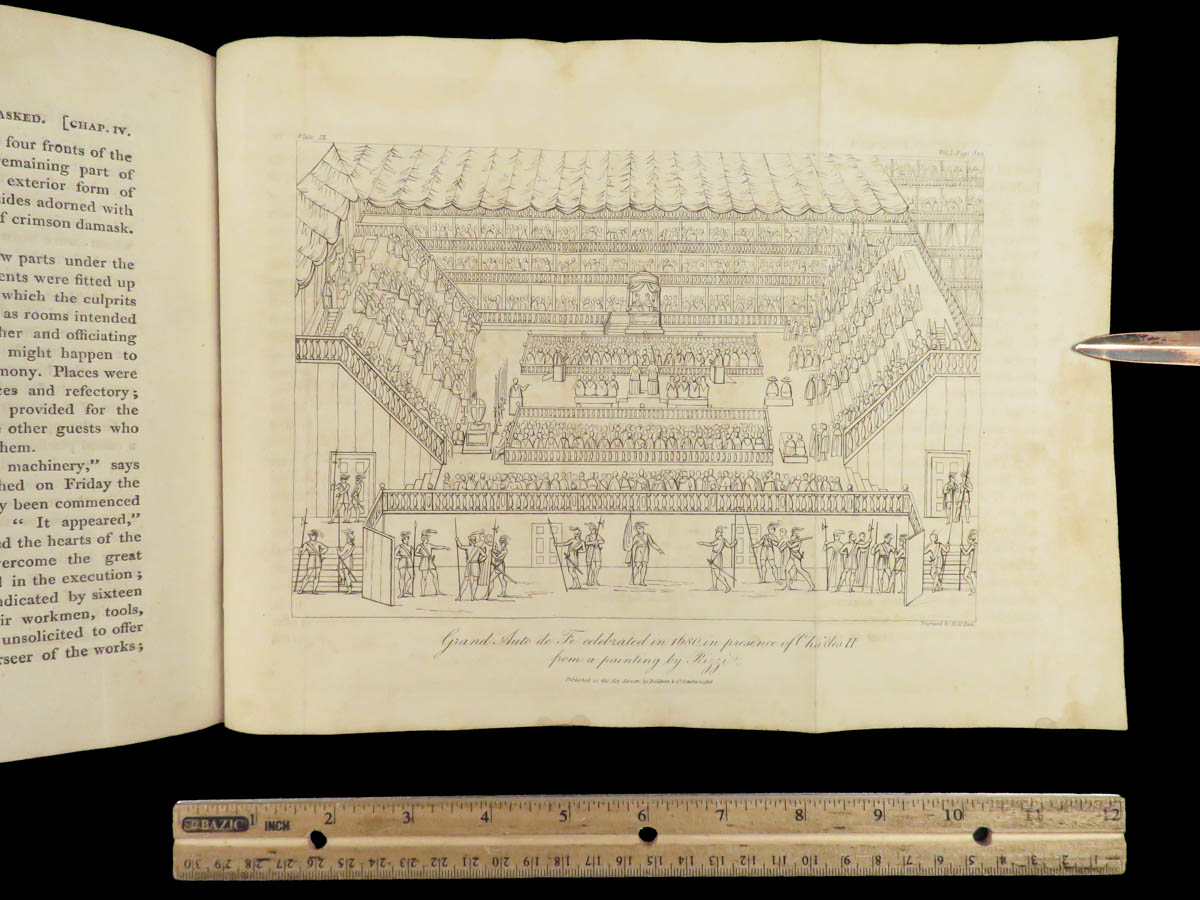 ASKED. [CHAP. IV.
four fronts of the
remaining part of
exterior form of
sides adorned with
of crimson damask.
w parts under the
ents were fitted up
which the culprits
as rooms intended
her and officiating
might happen to
mony. Places were
ces and refectory;
provided for the
other guests who
hem.
machinery," says
hed on Friday the
y been commenced
" It appeared,"
ed the hearts of the
vercome the great
l in the execution;
ndicated by sixteen
ir workmen, tools,
unsolicited to offer
rseer of the works;
Plate IX.
Vol. I. Page
Engraved by
Grand Auto de Fe celebrated in 1680, in presence of Charles II.
from a painting by Rizzi.
Published as the Act directs by Baldwin & Co
BAZIC INCH
1 2 3 4 5 6 7 8 9 10 11 12
30 29 28 27 26 25 24 23 22 21 20 19 18 17 16 15 14 13 12 11 10 9 8 7 6 5 4 3 2 1